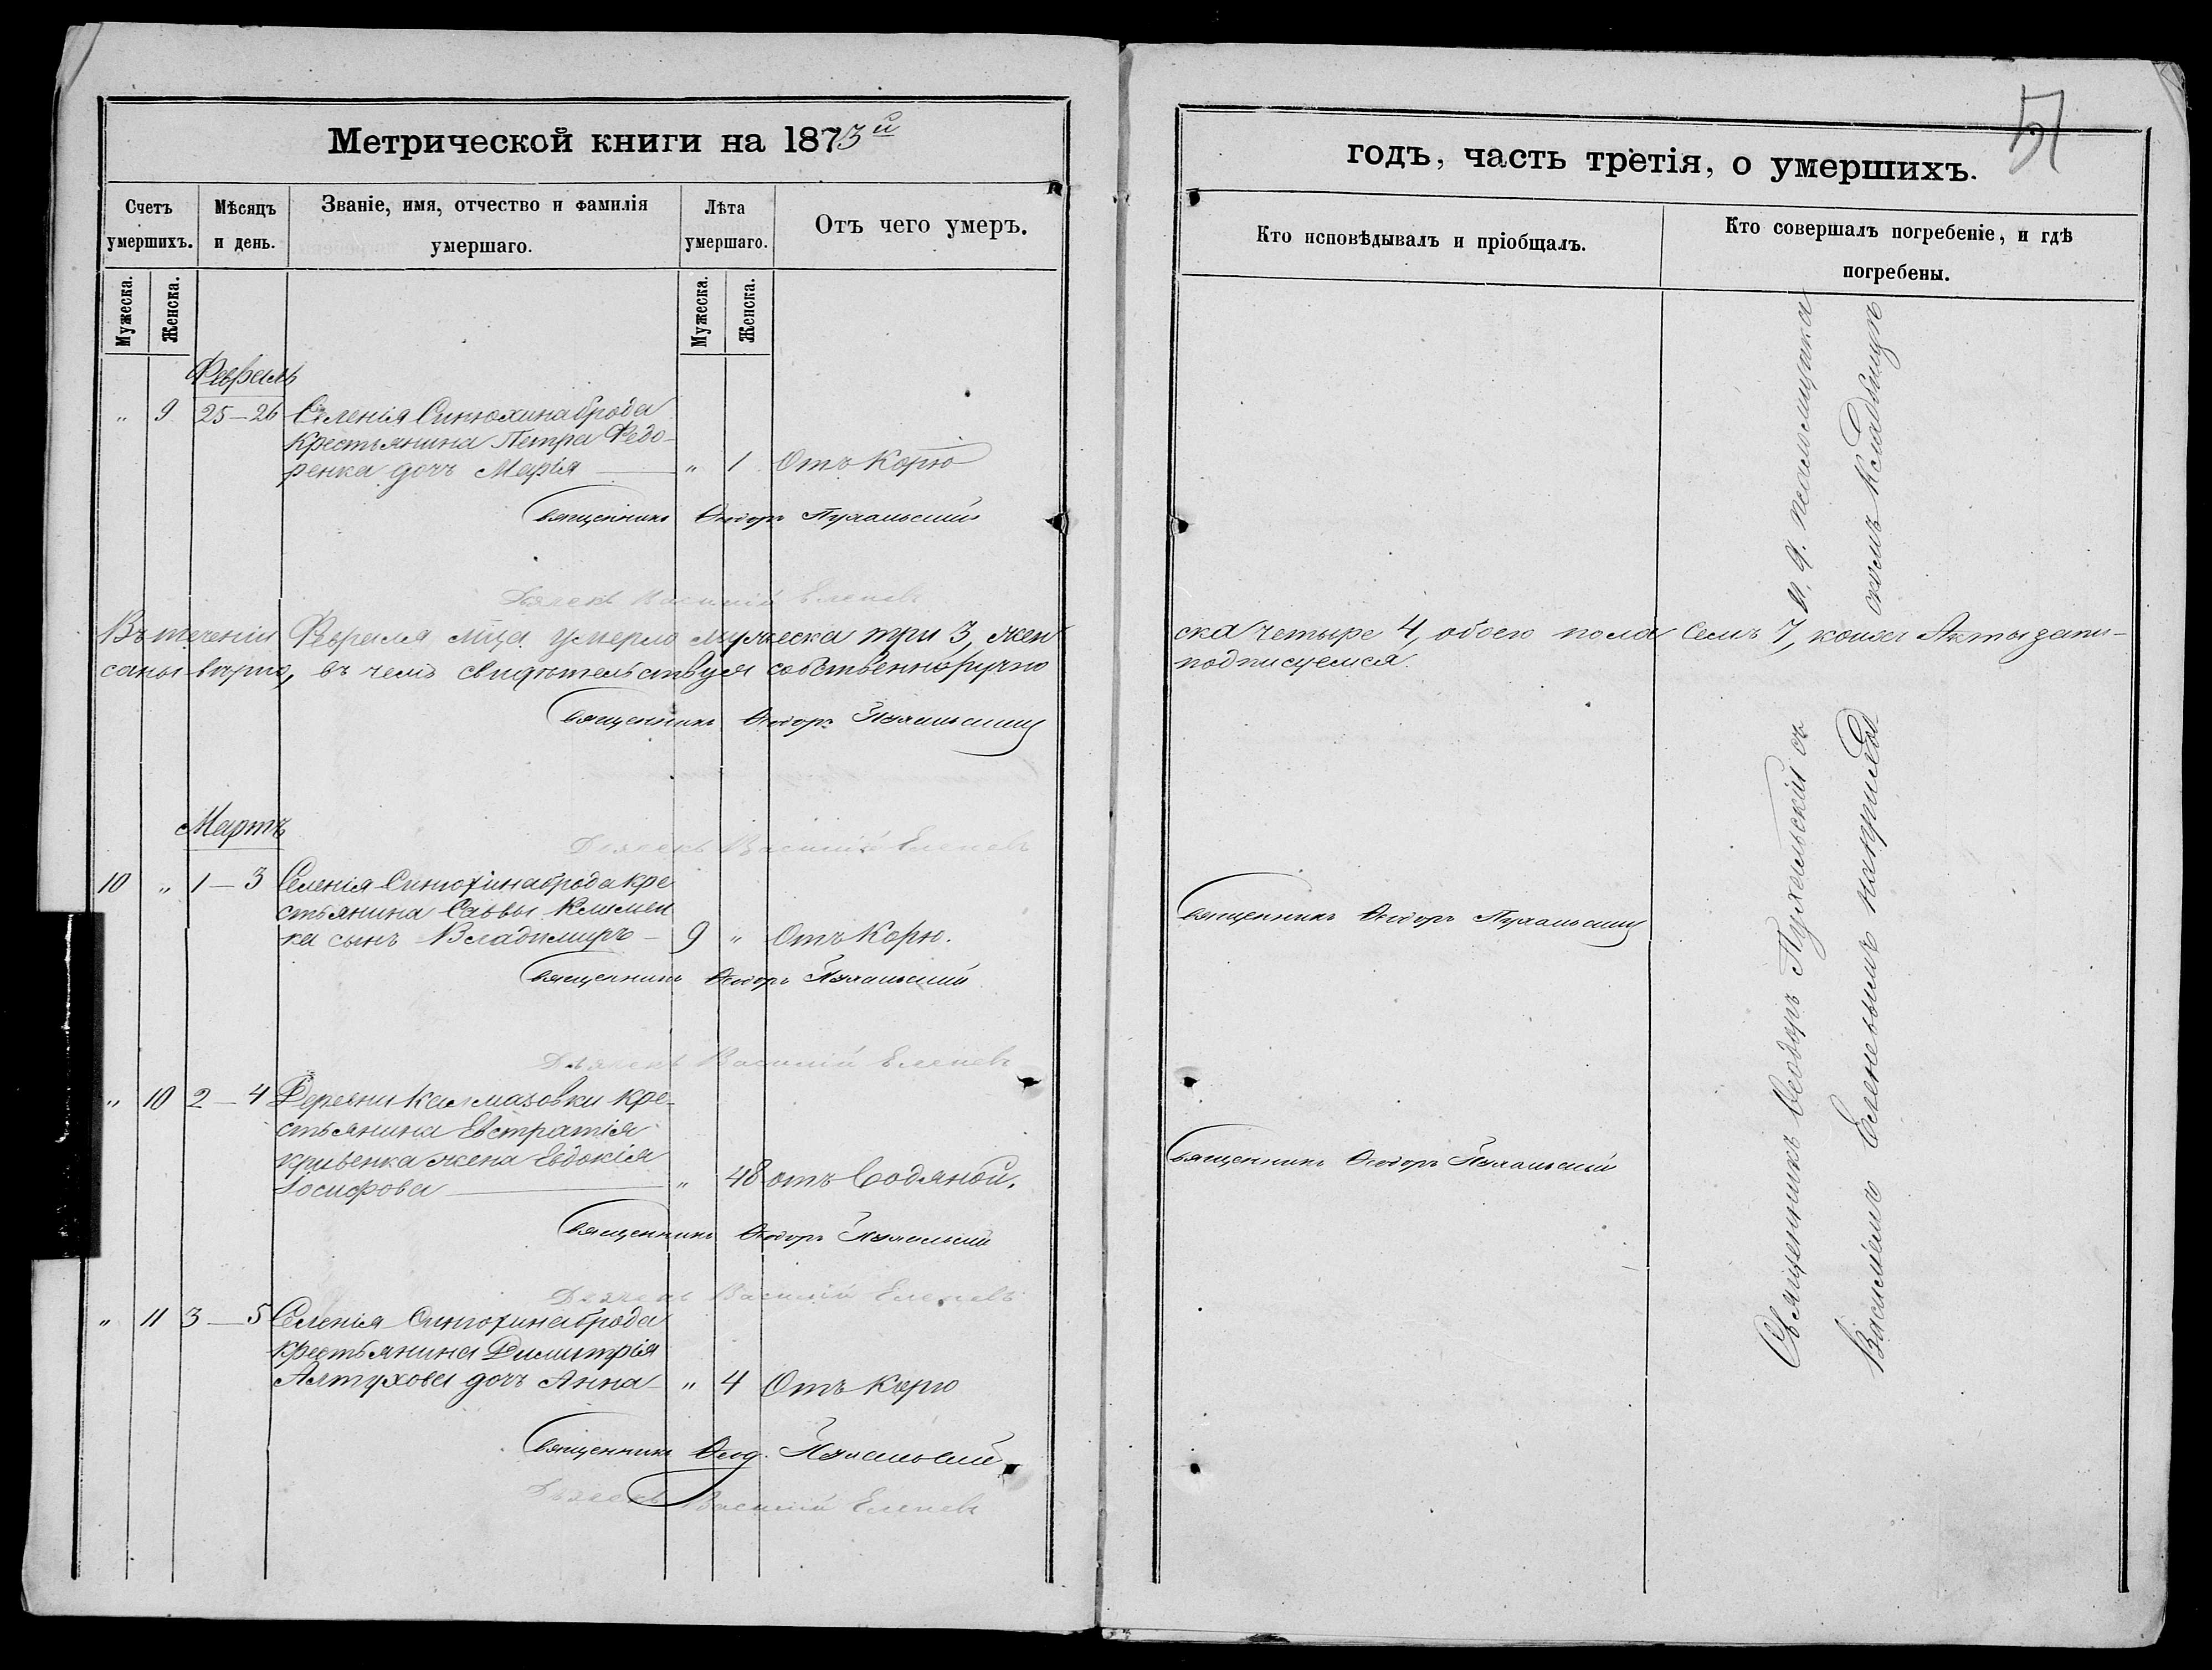 Метрической книги на 1873й
годъ, часть третія, о умершихъ.
51
Счетъ умершихъ.
Мѣсяцъ и день.
Званіе, имя, отчество и фамилія умершаго.
Лѣта умершаго.
Отъ чего умеръ.
Кто исповѣдывалъ и пріобщалъ.
Кто совершалъ погребеніе, и гдѣ погребены.
Мужеска.
Женска.
Мужеска.
Женска.
Февраль
" 9 25–26 Селенія Синюхинаброда
Крестьянина Петра Федо-
ренка дочъ Марія " 1 Отъ Корю
Священникъ Ѳеодоръ Пухальскій
Дьячекъ Василій Еленевъ
Въ теченіи Февраля мца умерло мужеска три 3, жен
ска четыре 4, обоего пола семь 7, коихъ Акты запи-
саны вѣрно, въ чемъ свидѣтельствуя собственноручно
подписуемся.
Священникъ Ѳеодоръ Пухальскій
Дьячекъ Василій Еленевъ
Мартъ
10 " 1–3 Селенія Синюхинаброда кре
стьянина Саввы Клımен
ка сынъ Владимиръ – 9 " Отъ Корю.
Священникъ Ѳеодоръ Пухальскій
Священникъ Ѳеодоръ Пухальскій
Дьячекъ Василій Еленевъ
" 10 2–4 Деревни Калмазовки кре-
стьянина Евстратія
Кривенка жена Евдокія
Іосифова " 48 отъ Водяной.
Священникъ Ѳеодоръ Пухальскій
Священникъ Ѳеодоръ Пухальскій
Дьячекъ Василій Еленевъ
" 11 3–5 Селенія Синюхинаброда
крестьянина Димитрія
Алтухова дочъ Анна – " 4 Отъ Корю
Священникъ Ѳеод. Пухальскій
Дьячекъ Василій Еленевъ
Священникъ Ѳеодоръ Пухальскій съ и. д. псаломщика
Василіемъ Еленевымъ на приход
скомъ кладбищѣ